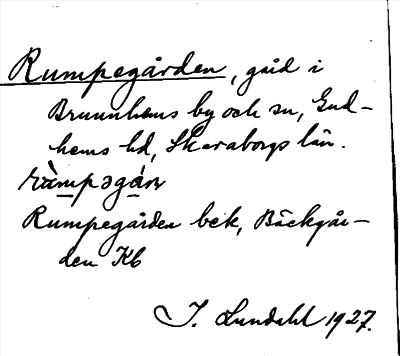 Rumpegården, gård i
Brunnhems by och sn, Gud-
hems hd, Skaraborgs län.
rùmpəgán
Rumpegården bek, Bäckgår-
den Kb
I. Lundahl 1927.